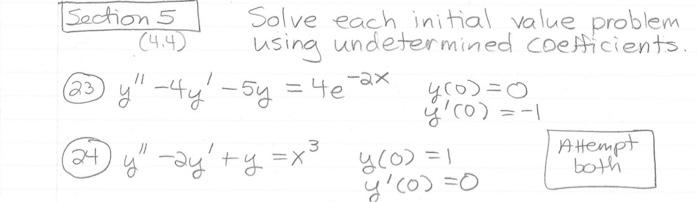 Section 5 Solve each initial value problem
(4.4) using undetermined coefficients.
(23) y" -4y' -5y = 4e^-2x y(0)=0
y'(0) = -1
(24) y" -2y' +y = x³ y(0) = 1
y'(0) = 0
Attempt
both